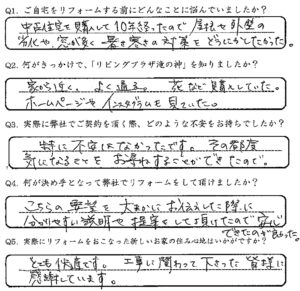 Q1. ご自宅をリフォームする前にどんなことに悩んでいましたか？
中古住宅を購入して10年経ったので 屋根や外壁の
劣化や窓が多く 暑さ寒さの対策をどうにかしたかった。
Q2. 何がきっかけで、「リビングプラザ滝の神」を知りましたか？
家から近く、よく通る。 花など購入していた。
ホームページやインスタグラムを見ていた。
Q3. 実際に弊社でご契約を頂く際、どのような不安をお持ちでしたか？
特に不安はなかったです。その都度
気になることをお尋ねすることができたので。
Q4. 何が決め手となって弊社でリフォームをして頂けましたか？
こちらの要望を大まかにお伝えした際に
分かりやすい説明や提案をして頂けたので安心
できたのが良かった。
Q5. 実際にリフォームをおこなった新しいお家の住み心地はいかがですか？
とても快適です。 工事に関わって下さった皆様に
感謝しています。